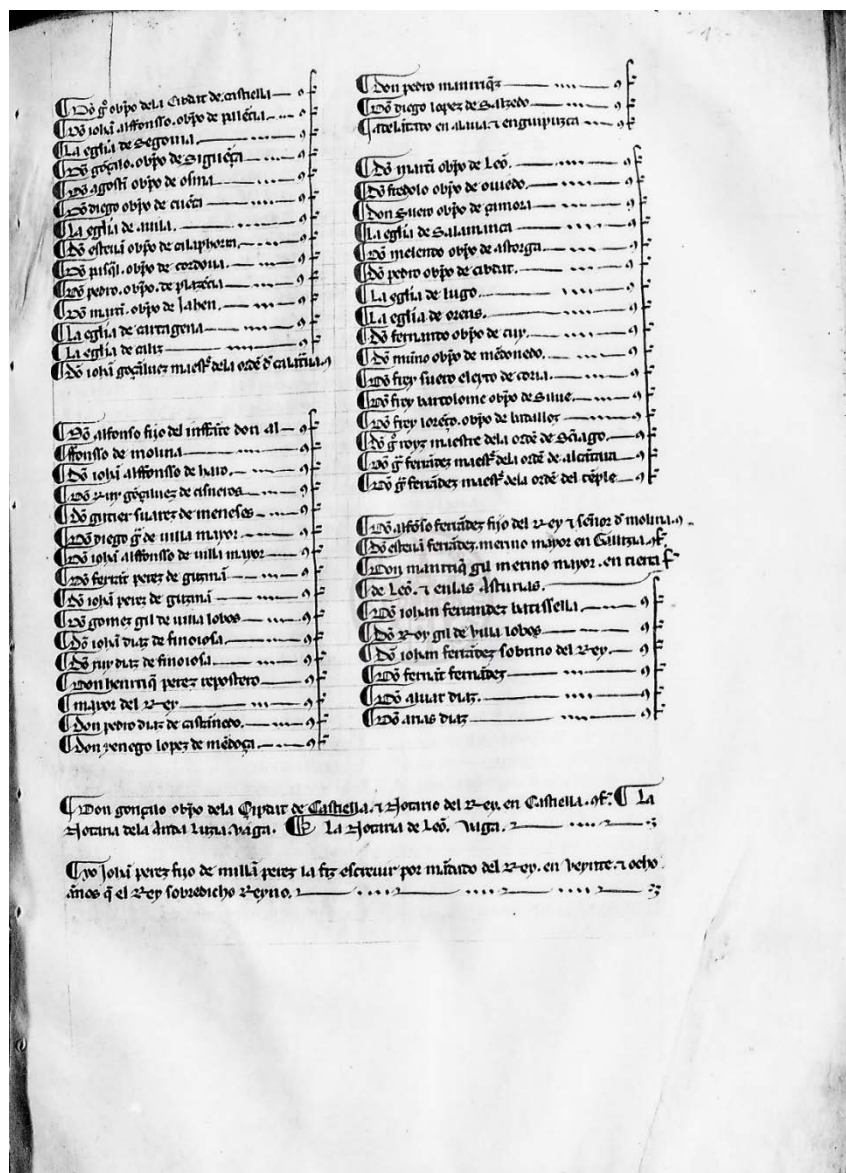 Dõ gº obpo dela Cibdat de castiella cf
Dõ iohã alffonsso obpo de palẽcia cf
La eglia de Segouia cf
Dõ gõçalo obpo de Siguẽça cf
Dõ agostĩ obpo de osma cf
Dõ diego obpo de cuẽca cf
La eglia de auila cf
Dõ esteuã obpo de calaphorra cf
Dõ pasqal obpo de cordoua cf
Dõ pedro obpo de plazẽcia cf
Dõ martĩ obpo de Jahen cf
La eglia de cartagena cf
La eglia de caliz cf
Dõ iohã gõçaluez maestr dela ordẽ d calatraua cf
Dõ alfonso fijo del inffãte don al cf
ffonsso de molina cf
Dõ iohã alffonsso de haro cf
Dõ Ruy gõçaluez de cisneros cf
Dõ gutier suarez de meneses cf
Dõ diego gª de uilla mayor cf
Dõ iohã alffonsso de uilla mayor cf
Dõ ferrãt perez de guzmã cf
Dõ iohã perez de guzmã cf
Dõ gomez gil de uilla lobos cf
Dõ iohã diaz de finoiosa cf
Dõ ruy diaz de finoiosa cf
Don henriq perez repostero cf
mayor del Rey cf
Don pedro diaz de castãneto cf
Don yenego lopez de mẽdoça cf
Don pedro manriqz cf
Dõ diego lopez de Salzedo cf
Adelãtado en alaua ⁊ en guipuzca cf
Dõ martĩ obpo de Leõ cf
Dõ fredolo obpo de ouiedo cf
Don Suero obpo de çamora cf
La eglia de Salamanca cf
Dõ melendo obpo de astorga cf
Dõ pedro obpo de cibdat cf
La eglia de lugo cf
La eglia de orens cf
Dõ fernando obpo de tuy cf
Dõ muño obpo de mẽdonedo cf
Dõ frey suero eleyto de coria cf
Dõ frey bartolome obpo de Silue cf
Dõ frey lorẽço obpo de badalloz cf
Dõ gº royz maestre dela ordẽ de Sãiago cf
Dõ gª ferrãdez maestr dela ordẽ de alcãtara cf
Dõ gª ferrãdez maestr dela ordẽ del tẽple cf
Dõ alfõso ferrãdez fijo del Rey ⁊ señor d molina cf
Dõ esteuã ferrãdez merino mayor en Gallizia cf
Don manriq gil merino mayor en tierra cf
de Leõ ⁊ enlas Asturias
Dõ iohan ferrandez batissella cf
Dõ Roy gil de uilla lobos cf
Dõ iohan ferrãdez sobrino del Rey cf
Dõ ferrãt ferrãdez cf
Dõ aluar diaz cf
Dõ arias diaz cf
Don gonçalo obpo dela Cipdat de Castiella ⁊ Notario del Rey en Castiella cf La
Notaria dela Anda luzia uaga La Notaria de Leõ Uaga
yo Johã perez fijo de millã perez la fiz escreuir por mãdado del Rey en ueynte ⁊ ocho
ãnos q el Rey sobredicho Reyno